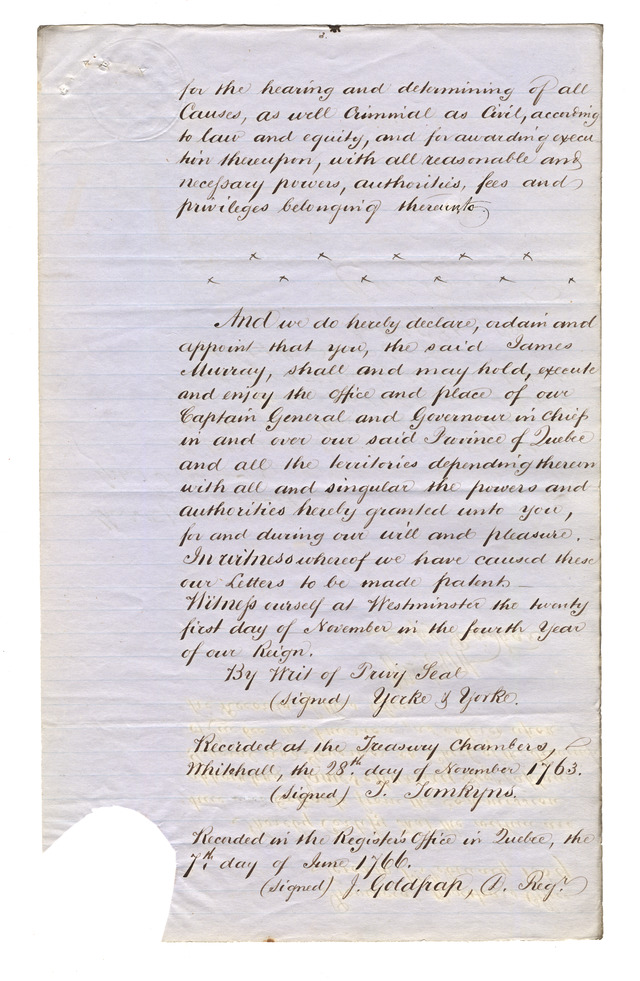 3.
for the hearing and determining of all
Causes, as well Criminal as Civil, according
to law and equity, and for awarding execu
tion thereupon, with all reasonable and
necessary powers, authorities, fees and
privileges belonging thereunto.
x x x x x
x x x x x x
And we do hereby declare, ordain and
appoint that you, the said James
Murray, shall and may hold, execute
and enjoy the office and place of our
Captain General and Governour in Chief
in and over our said Province of Quebec
and all the territories depending thereon
with all and singular the powers and
authorities hereby granted unto you,
for and during our will and pleasure.
In witness whereof we have caused these
our Letters to be made patent
Witness ourself at Westminster the twenty
first day of November in the fourth Year
of our Reign.
By Writ of Privy Seal
(Signed) Yorke & Yorke.
Recorded at the Treasury Chambers,
Whitehall, the 28th day of November 1763.
(Signed) T. Tomkyns.
Recorded in the Register's Office in Quebec, the
7th day of June 1766.
(Signed) J. Goldfrap, D. Regr.